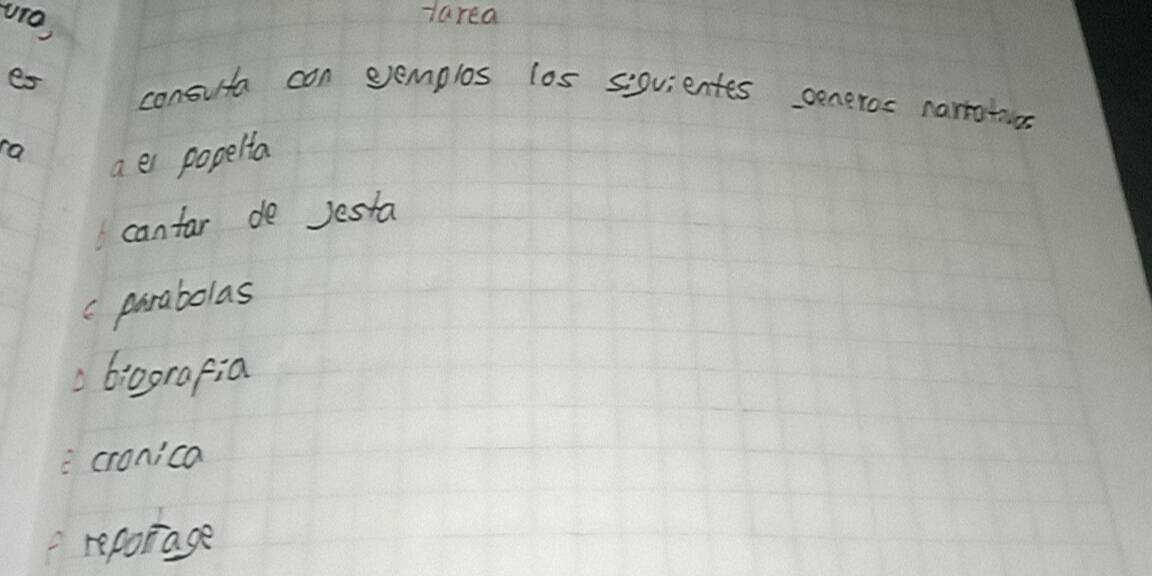 uro,
tarea
es
consulta con ejemplos los siguientes generos narrativos
ra
a el popelta
b cantar de jesta
c parabolas
D biografia
E cronica
F reportage